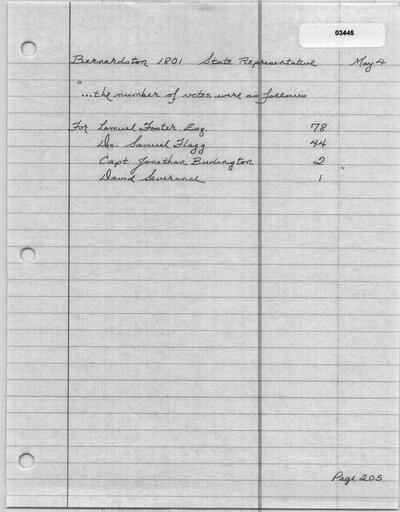 03445
Bernardston 1801 State Representative May 4
"...the number of votes were as follows
For Lemuel Foster Esq. 78
Dec. Samuel Flagg 44
Capt. Jonathan Budington 2 "
David Severance 1
Page 205